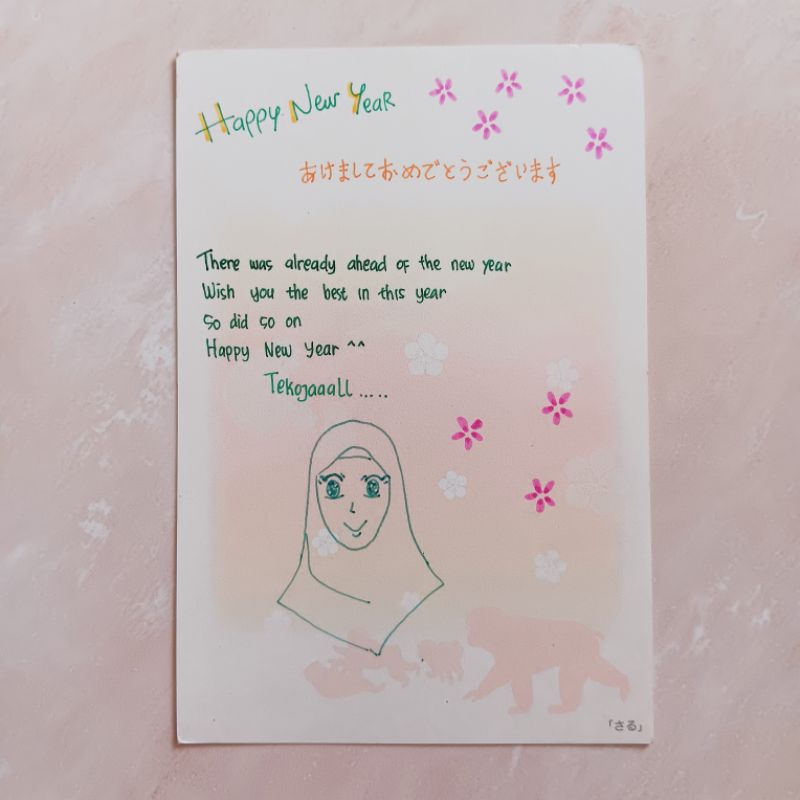 Happy New Year
あけましておめでとうございます
There was already ahead of the new year
Wish you the best in this year
So did so on
Happy New Year ^^
Tekojaaall .....
「さる」